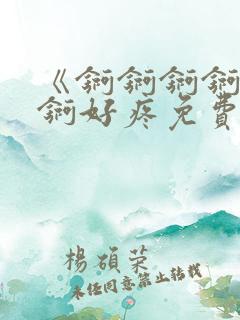 《锕锕锕锕
锕好疼免費
楊碩荣
未任同意禁止转载